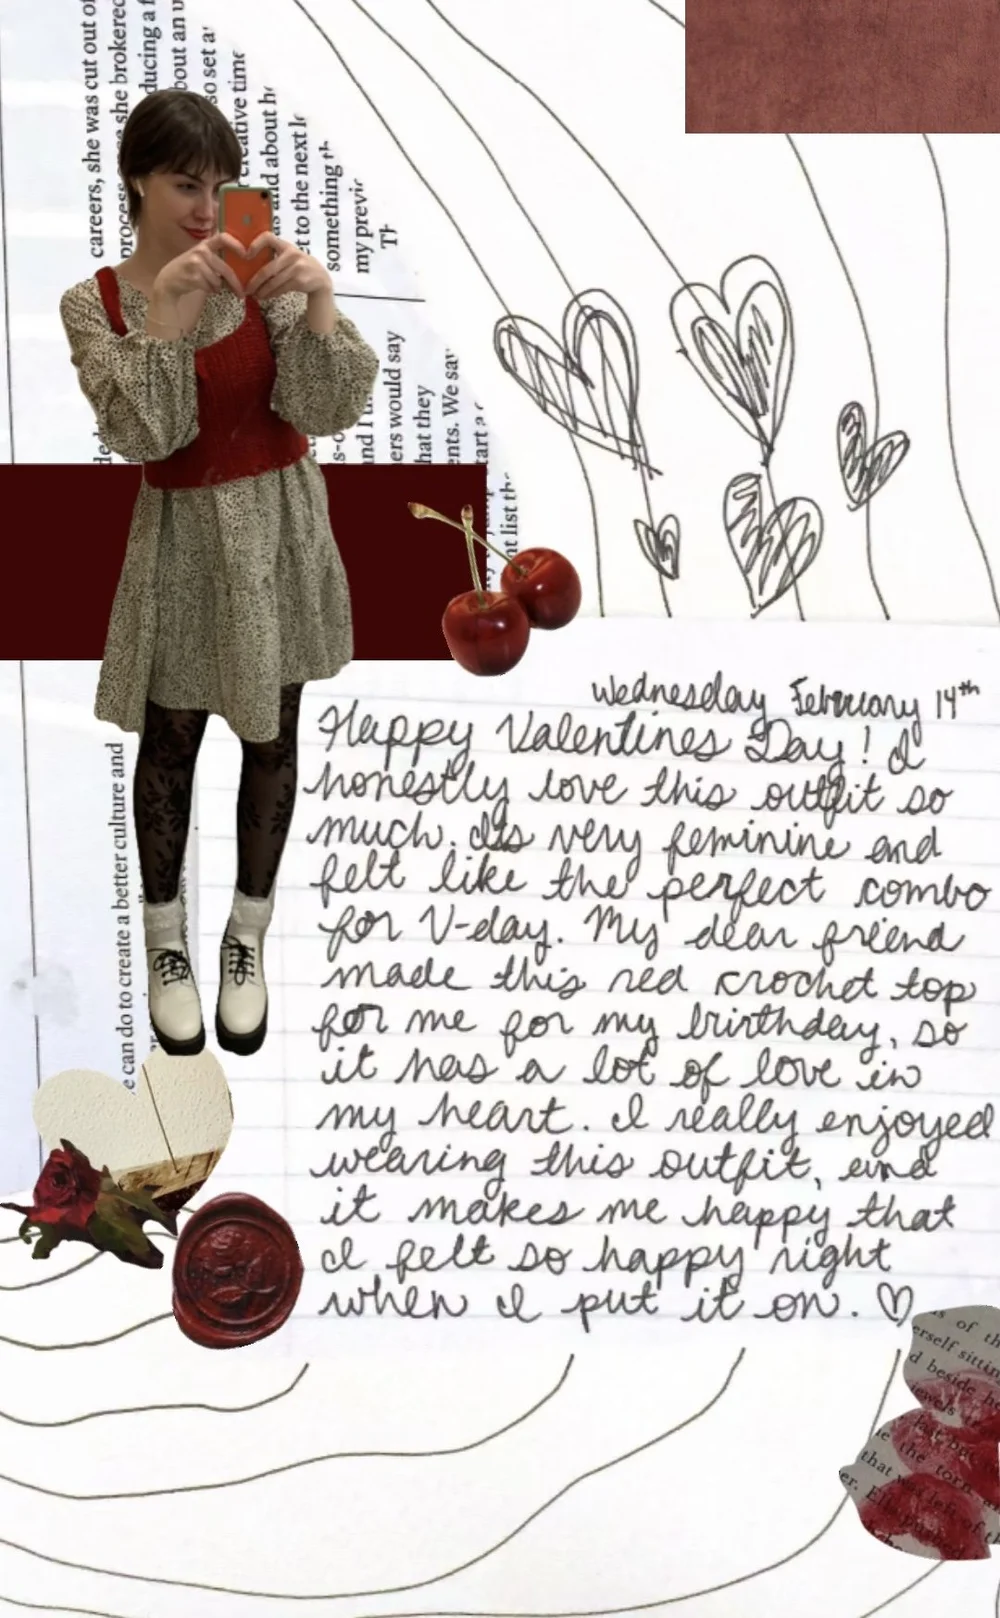 careers, she was cut out of
she brokered
ducing a f
bout an u
so set a
creative time
and about h
et to the next l
something th
my previ
Th
ers would say
hat they
ents. We say
start a c
nt list th
e can do to create a better culture and
Wednesday February 14th
Happy Valentines Day! I
honestly love this outfit so
much. Its very feminine and
felt like the perfect combo
for V-day. My dear friend
made this red crochet top
for me for my birthday, so
it has a lot of love in
my heart. I really enjoyed
wearing this outfit, and
it makes me happy that
I felt so happy right
when I put it on. ♡
s of th
erself sittin
d beside he
jewels
last but
e the torn
that was left of th
er. Ella